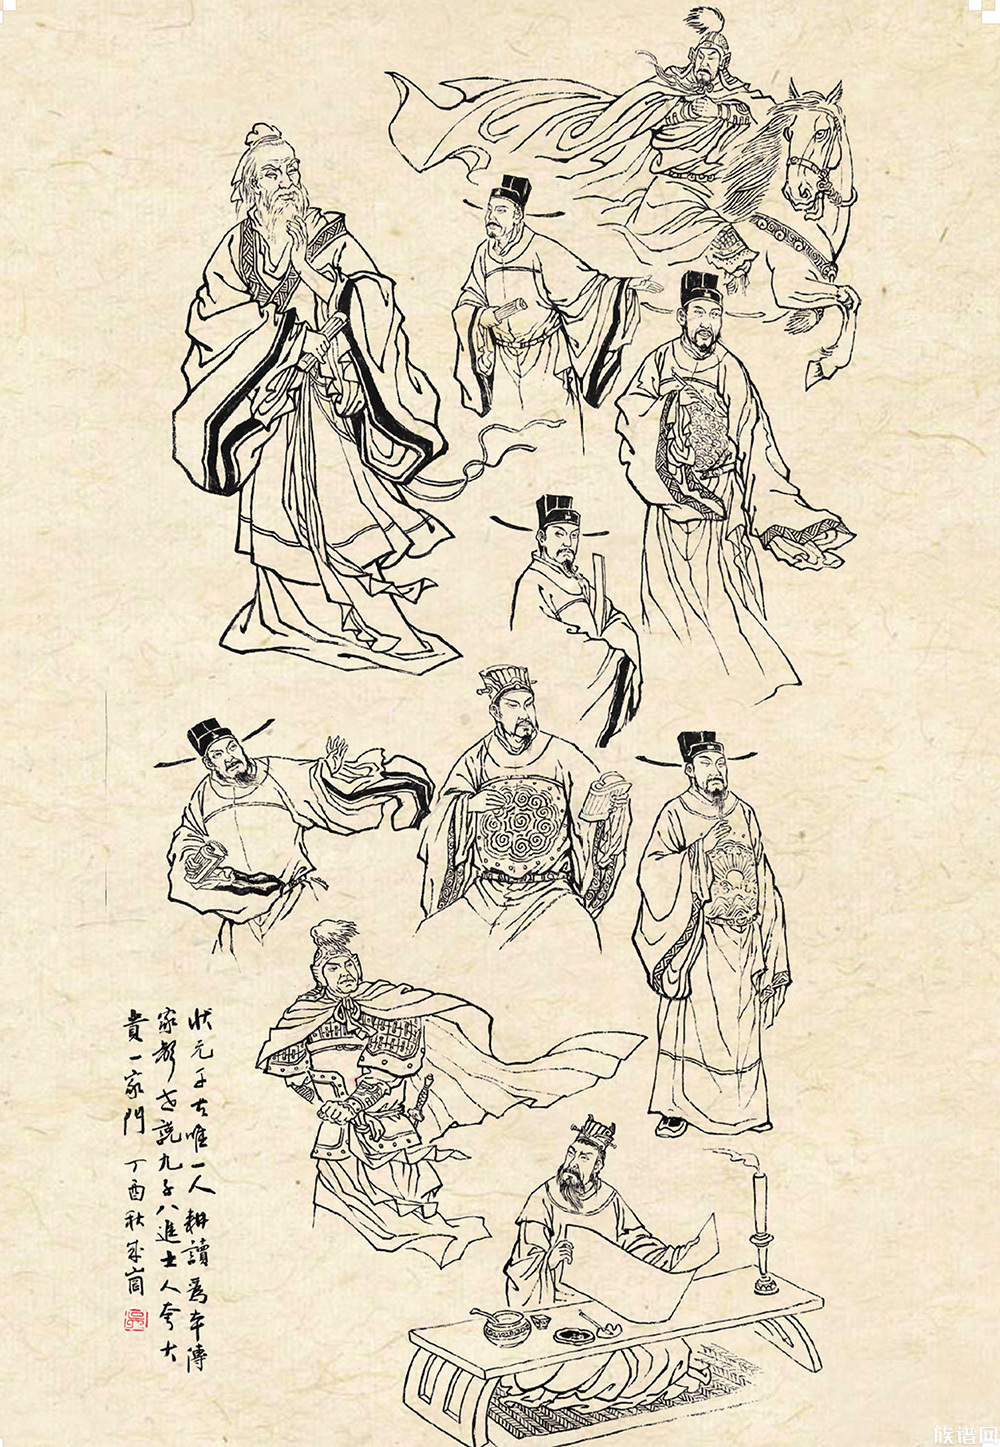 状元千古唯一人耕讀為本傳
家郷世說九子八進士人夸大
貴一家門 丁酉秋成崗
族谱网